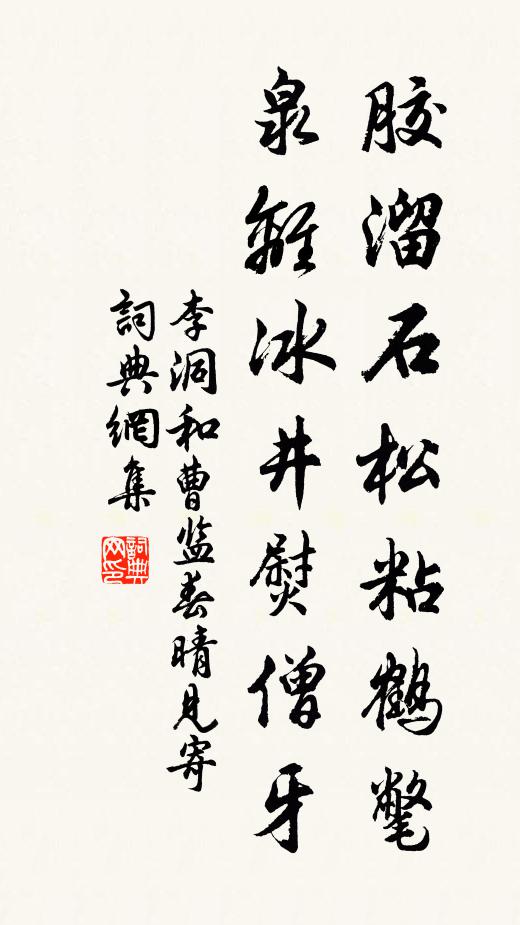 胶溜石松粘鶴氅
泉離冰井熨僧牙
李洞和曹监春晴見寄
詞典網集
詞典网印